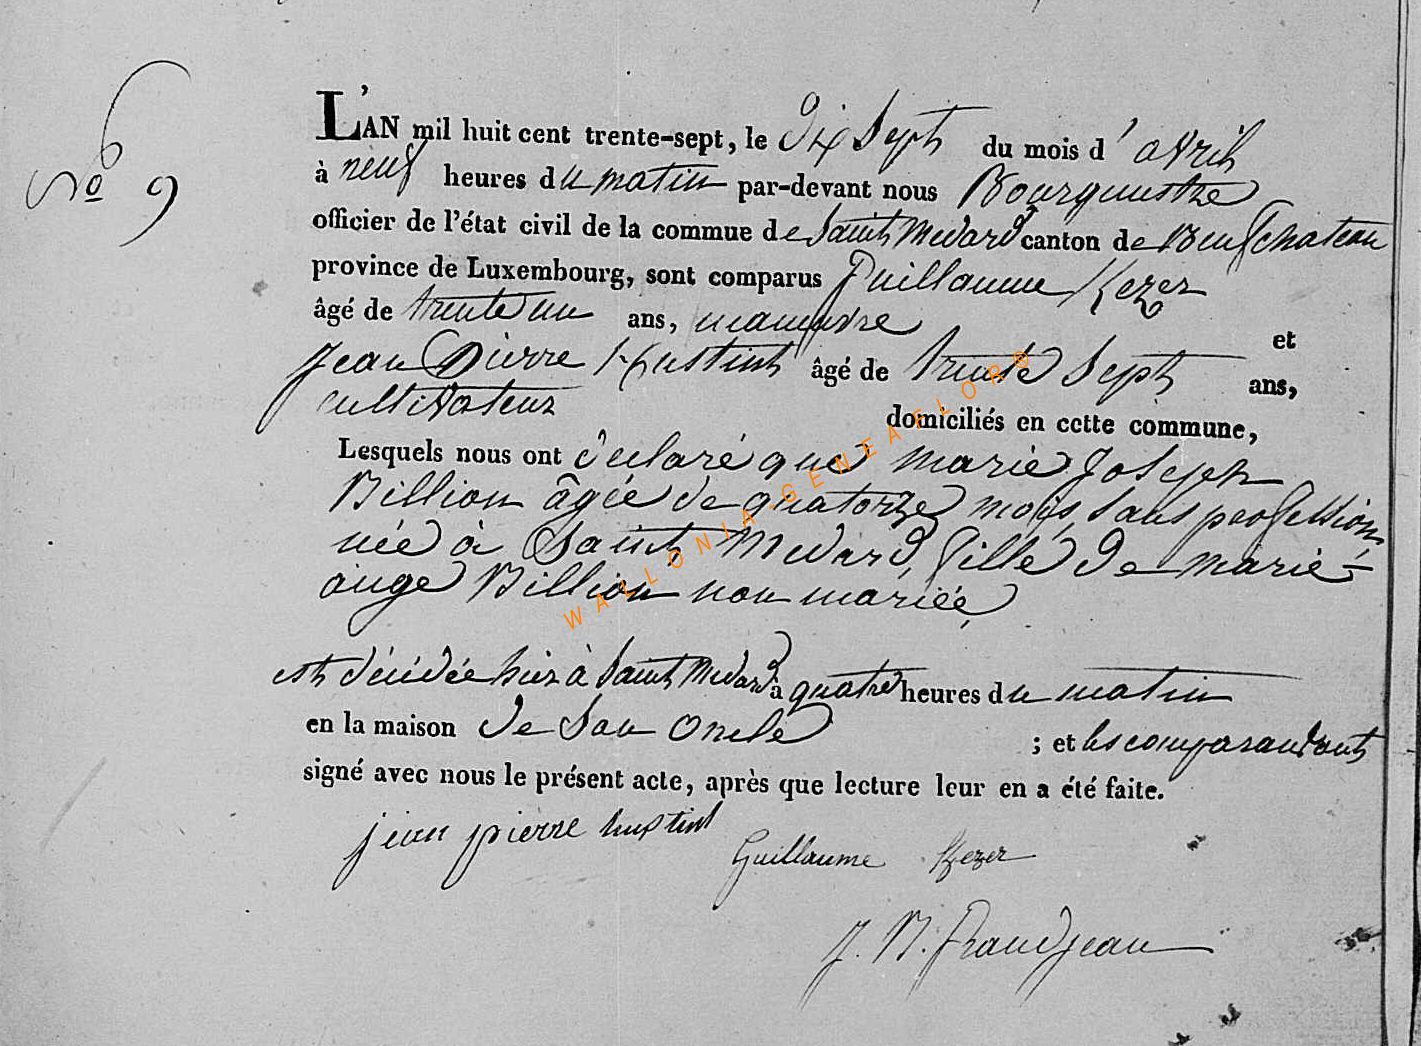 No 9
L'AN mil huit cent trente-sept, le dix Sept du mois d'avril
à neuf heures du matin par-devant nous Bourguestre
officier de l'état civil de la commue de Saint Medard canton de Neufchateau
province de Luxembourg, sont comparus Guillaume Kezer
âgé de trente un ans, maneuvre et
Jean Pierre Hustint âgé de trente Sept ans,
cultivateur domiciliés en cette commune,
Lesquels nous ont declaré que marie Joseph
Billion âgée de quatorze mois, sans profession,
née à Saint Medard, fille de marie-
ange Billion non mariée,
est décédée hier à Saint Medard à quatre heures du matin
en la maison de son oncle ; et les comparandants
signé avec nous le présent acte, après que lecture leur en a été faite.
jean pierre hustint
Guillaume Kezer
J. N. Grandjean
WALLONIA-GENEAFLOR®